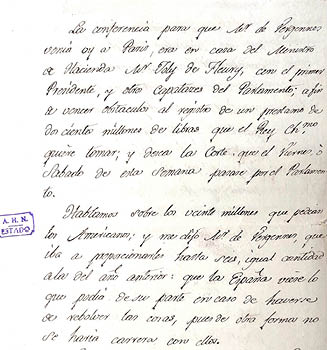 La conferencia para que Mr. de Vergennes
venia oy a Paris, era en casa del Ministro
de Hacienda Mr. Joly de Fleury, con el primer
Presidente, y otros Capataces del Parlamento; a fin
de vencer obstaculos al registro de un prestamo de
doscientos millones de libras que el Rey Chmo.
quiere tomar; y desea la Corte que el Viernes, o
Sabado de esta semana parase por el Parlamen
to.
Hablamos sobre los veinte millones que pedian
los Americanos; y me dijo Mr. de Vergennes, que
iba a proporcionarles hasta seis, igual cantidad
a la del año anterior: que la España viese lo
que podia de su parte en caso de haverse
de rebolver las cosas, pues de otra forma no
se haria carrera con ellos.
A. H. N.
ESTADO